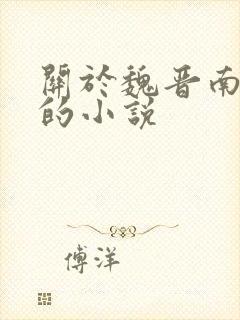 關於魏晉南
的小說
傅洋